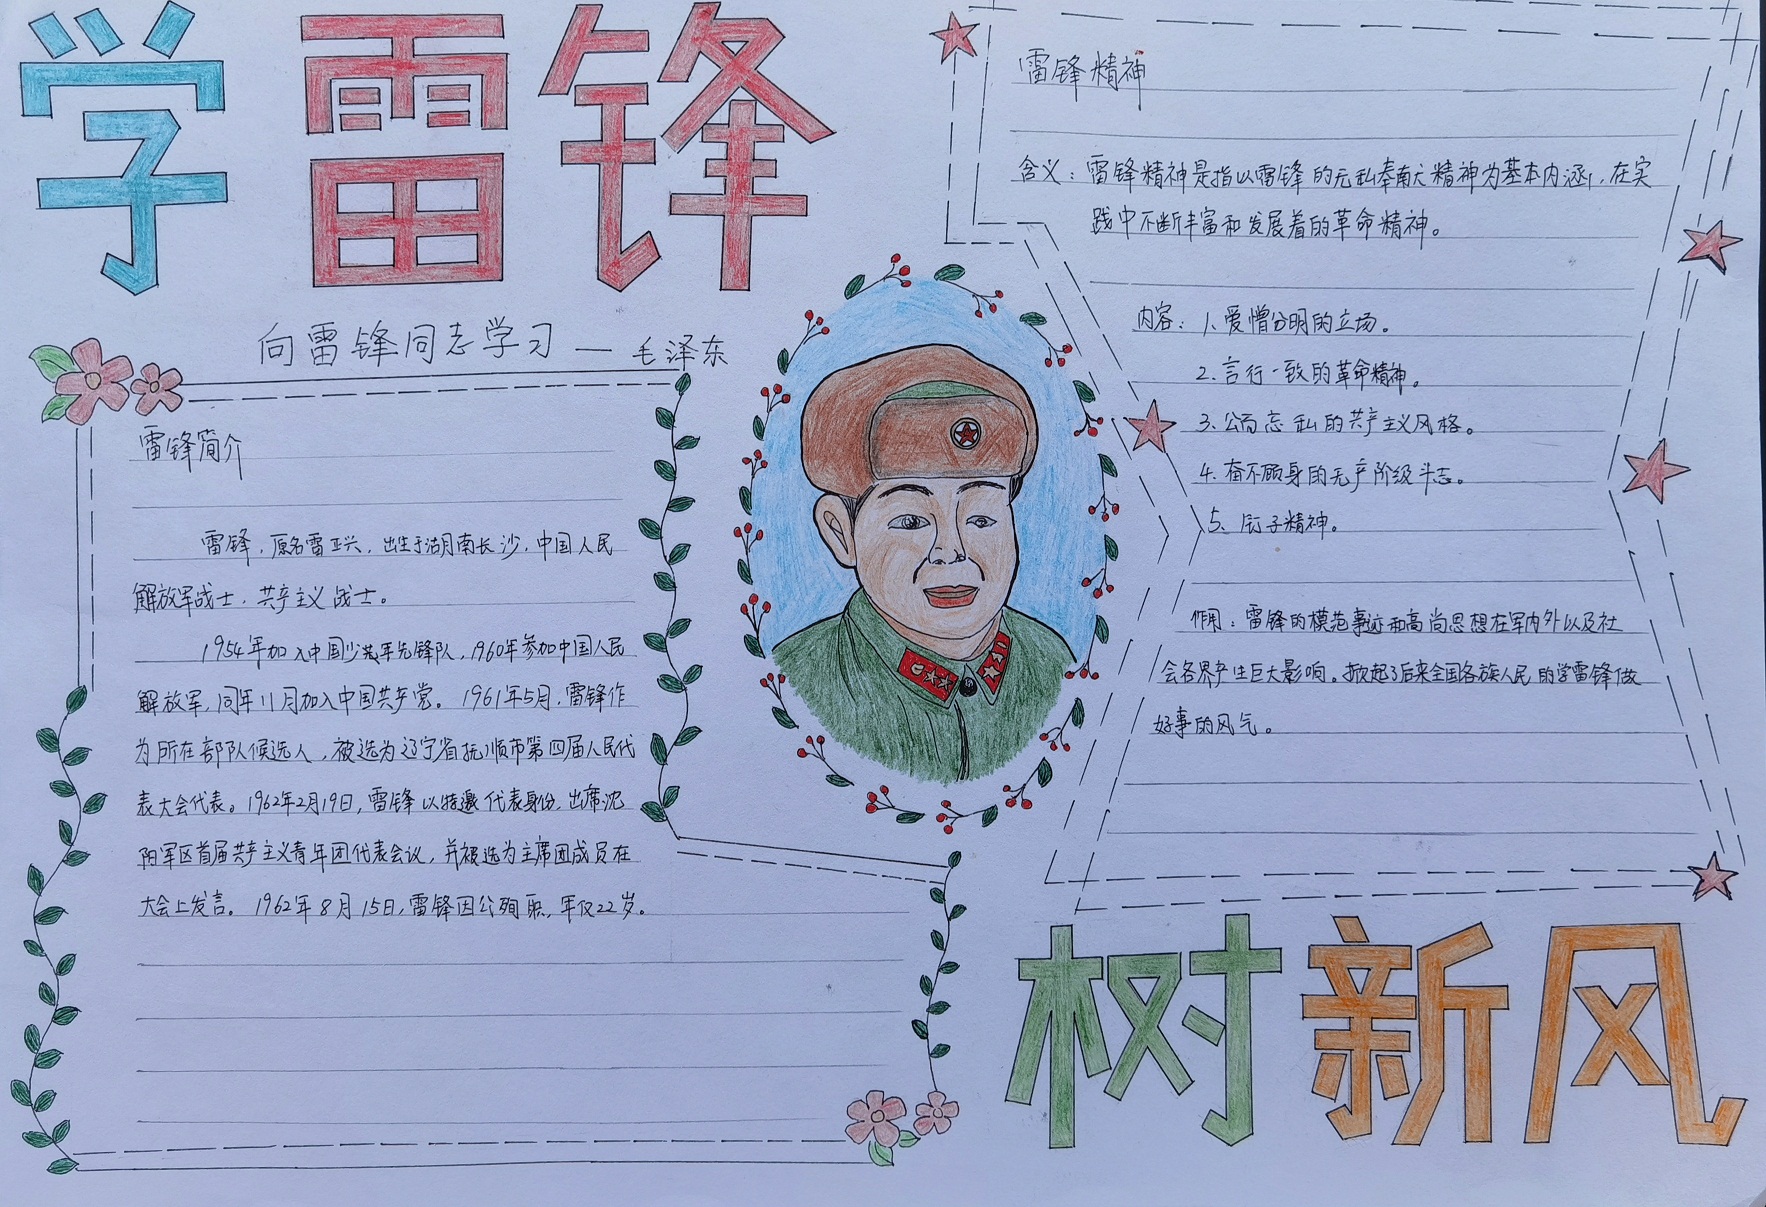 学雷锋
向雷锋同志学习 — 毛泽东
雷锋简介
雷锋，原名雷正兴，出生于湖南长沙，中国人民
解放军战士，共产主义战士。
1954年加入中国少先队先锋队，1960年参加中国人民
解放军，同年11月加入中国共产党。1961年5月，雷锋作
为所在部队候选人，被选为辽宁省抚顺市第四届人民代
表大会代表。1962年2月19日，雷锋以特邀代表身份，出席沈
阳军区首届共产主义青年团代表会议，并被选为主席团成员在
大会上发言。1962年8月15日，雷锋因公殉职，年仅22岁。
雷锋精神
含义：雷锋精神是指以雷锋的无私奉献精神为基本内涵，在实
践中不断丰富和发展着的革命精神。
内容：1、爱憎分明的立场。
2、言行一致的革命精神。
3、公而忘私的共产主义风格。
4、奋不顾身的无产阶级斗志。
5、钉子精神。
作用：雷锋的模范事迹和高尚思想在军内外以及社
会各界产生巨大影响。掀起了后来全国各族人民的学雷锋做
好事的风气。
树新风